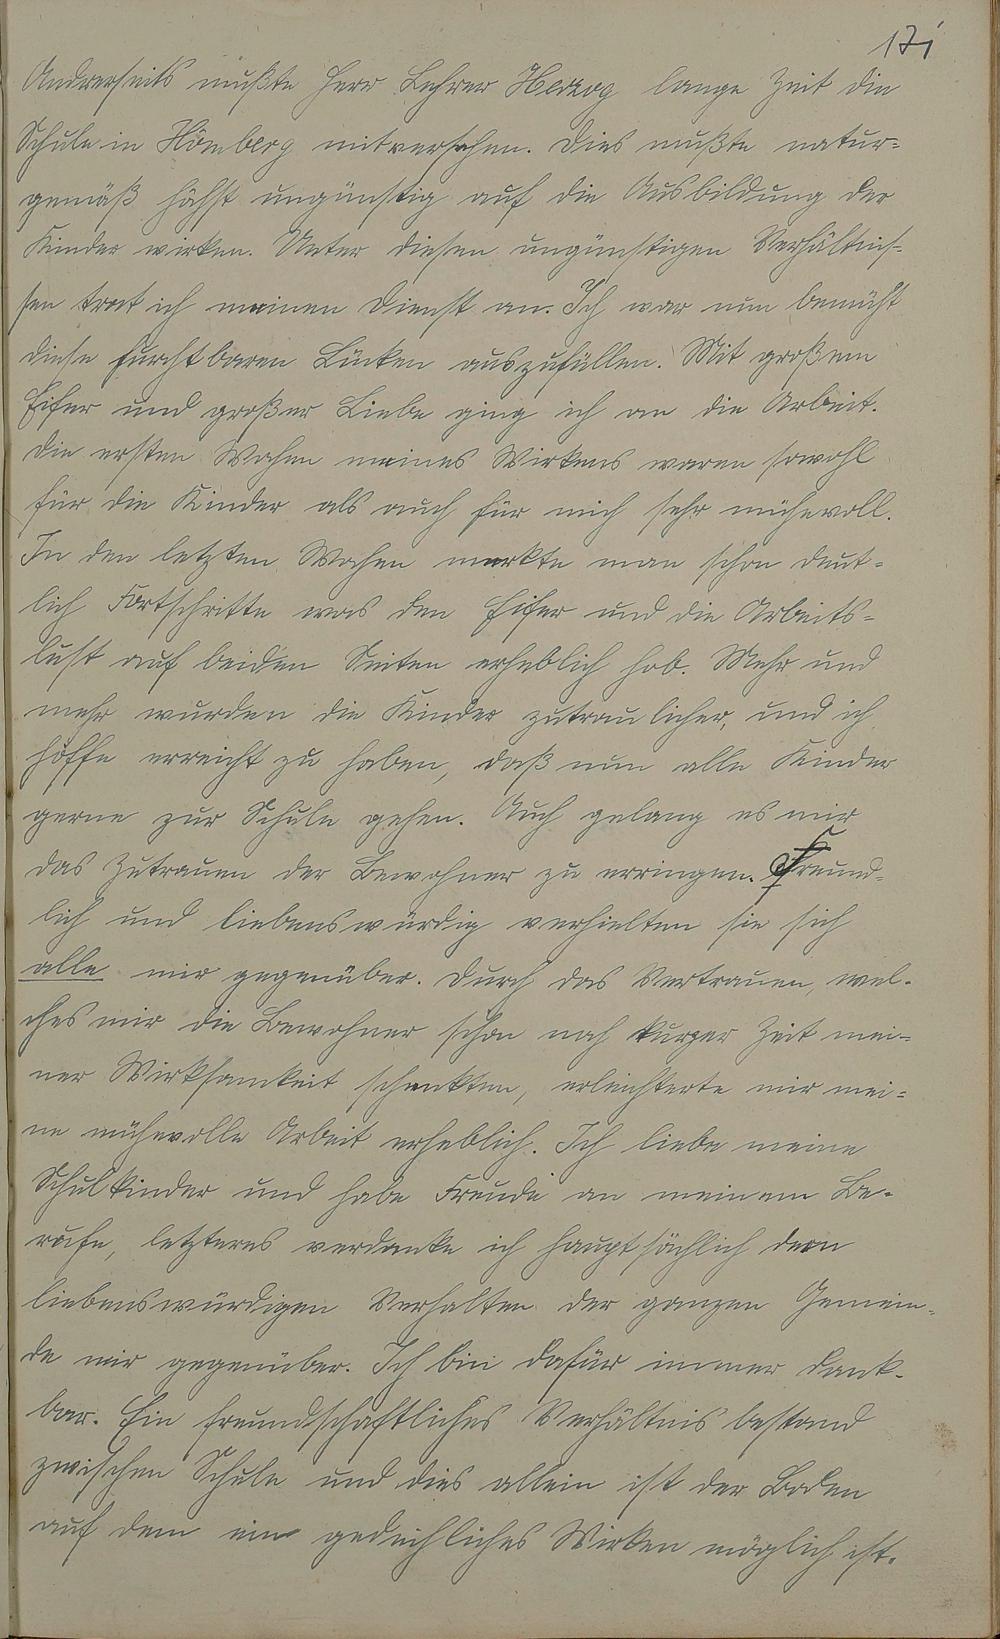 171
Andrerseits mußte Herr Lehrer Herzog lange Zeit die
Schule in Hömberg mitversehen. Dies mußte natur-
gemäß höchst ungünstig auf die Ausbildung der
Kinder wirken. Unter diesen ungünstigen Verhältnis-
sen trat ich meinen Dienst an. Ich war nun bemüht
diese furchtbaren Lücken auszufüllen. Mit großem
Eifer und großer Liebe ging ich an die Arbeit.
Die ersten Wochen meines Wirkens waren sowohl
für die Kinder als auch für mich sehr mühevoll.
In den letzten Wochen merkte man schon deut-
lich Fortschritte was den Eifer und die Arbeits-
lust auf beiden Seiten erheblich hob. Mehr und
mehr wurden die Kinder zutraulicher, und ich
hoffe erreicht zu haben, daß nun alle Kinder
gerne zur Schule gehen. Auch gelang es mir
das Zutrauen der Bewohner zu erringen. Freund-
lich und liebenswürdig verhielten sie sich
alle mir gegenüber. Durch das Vertrauen, wel-
ches mir die Bewohner schon nach kurzer Zeit mei-
ner Wirksamkeit schenkten, erleichterte mir mei-
ne mühevolle Arbeit erheblich. Ich liebe meine
Schulkinder und habe Freude an meinem Be-
rufe, letzteres verdanke ich hauptsächlich dem
liebenswürdigen Verhalten der ganzen Gemein-
de mir gegenüber. Ich bin dafür immer dank-
bar. Ein freundschaftliches Verhältnis bestand
zwischen Schule und dies allein ist der Boden
auf dem ein gedeihliches Wirken möglich ist.